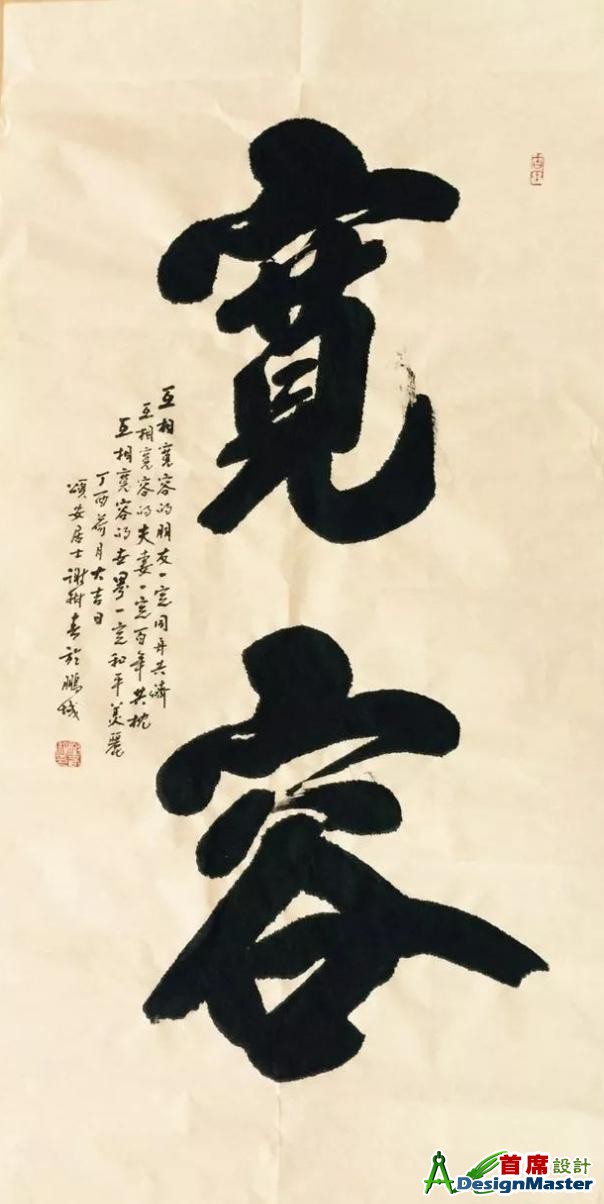 寬
容
互相寬容的朋友一定同舟共濟
互相寬容的夫妻一定百年共枕
互相寬容的世界一定和平美麗
丁酉荷月大吉日
頌安居士謝樹春於鵬城
首席設計
DesignMaster